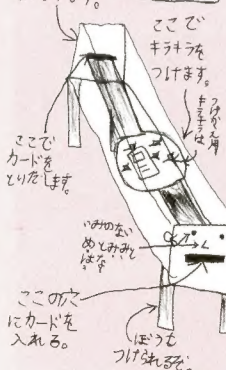 ます。
ここで
キラキラを
つけます。
つけかえ用
キラキラは
ここで
カードを
とりだします。
いみのない
めとみみと
はな
ここの穴
にカードを
入れる。
ぼうも
つけられるぞ。